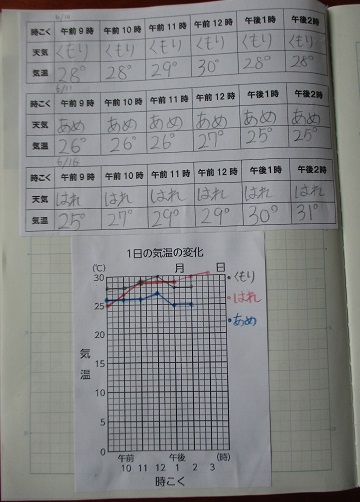 時こく 午前9時 午前10時 午前11時 午前12時 午後1時 午後2時
天気 くもり くもり くもり くもり くもり くもり
気温 28° 28° 29° 30° 28° 28°
6/11
時こく 午前9時 午前10時 午前11時 午前12時 午後1時 午後2時
天気 あめ あめ あめ あめ あめ あめ
気温 26° 26° 26° 27° 25° 25°
6/16
時こく 午前9時 午前10時 午前11時 午前12時 午後1時 午後2時
天気 はれ はれ はれ はれ はれ はれ
気温 25° 27° 29° 29° 30° 31°
1日の気温の変化
(℃) 月 日
30 くもり
はれ
25 あめ
20
気温
15
10
5
0
午前 午後
10 11 12 1 2 3 (時)
時こく